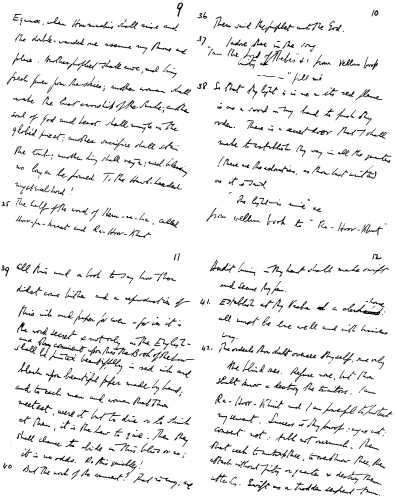 9
Equinox, when Hrumachis shall arise and
the double-wanded one assume my throne and
place. Another prophet shall arise, and bring
fresh fever from the skies; another woman shall
wake the lust & worship of the Snake; another
soul of God and beast shall mingle in the
globèd priest; another sacrifice shall stain
the tomb; another king shall reign; and blessing
no longer be poured To the Hawk-headed
mystical Lord!
35 The half of the word of Heru-ra-ha, called
Hoor-pa-kraat and Ra-Hoor-Khut.
10
36 Then said the prophet unto the God.
37 I adore thee in the song
"I am the Lord of Thebes" &c from vellum book
——— "fill me"
38 So that thy light is in me & its red flame
is as a sword in my hand to push thy
order. There is a secret door that I shall
make to establish thy way in all the quarters
(these are the adorations, as thou hast written)
as it is said.
"The light is mine" &c
from vellum book to "Ra-Hoor-Khuit"
11
39 All this and a book to say how thou
didst come hither and a reproduction of
this ink and paper for ever – for in it is
the word secret & not only in the English –
and thy comment upon this the Book of the Law
shall be printed beautifully in red ink and
black upon beautiful paper made by hand;
and to each man and woman that thou
meetest, were it but to dine or to drink
at them, it is the Law to give. Then they
shall chance to abide in this bliss or no;
it is no odds. Do this quickly!
40 But the work of the comment? That is easy; and
12
Hadit burning in thy heart shall make swift
and secure thy pen.
41. Establish at thy Kaaba a clerk-house:
all must be done well and with business
way.
42. The ordeals thou shalt oversee thyself, save only
the blind ones. Refuse none, but thou
shalt know & destroy the traitors. I am
Ra-Hoor-Khuit and I am powerful to protect
my servant. Success is thy proof: argue not:
convert not: talk not overmuch. Them
that seek to entrap thee, to overthrow thee, them
attack without pity or quarter & destroy them
utterly. Swift as a trodden serpent turn